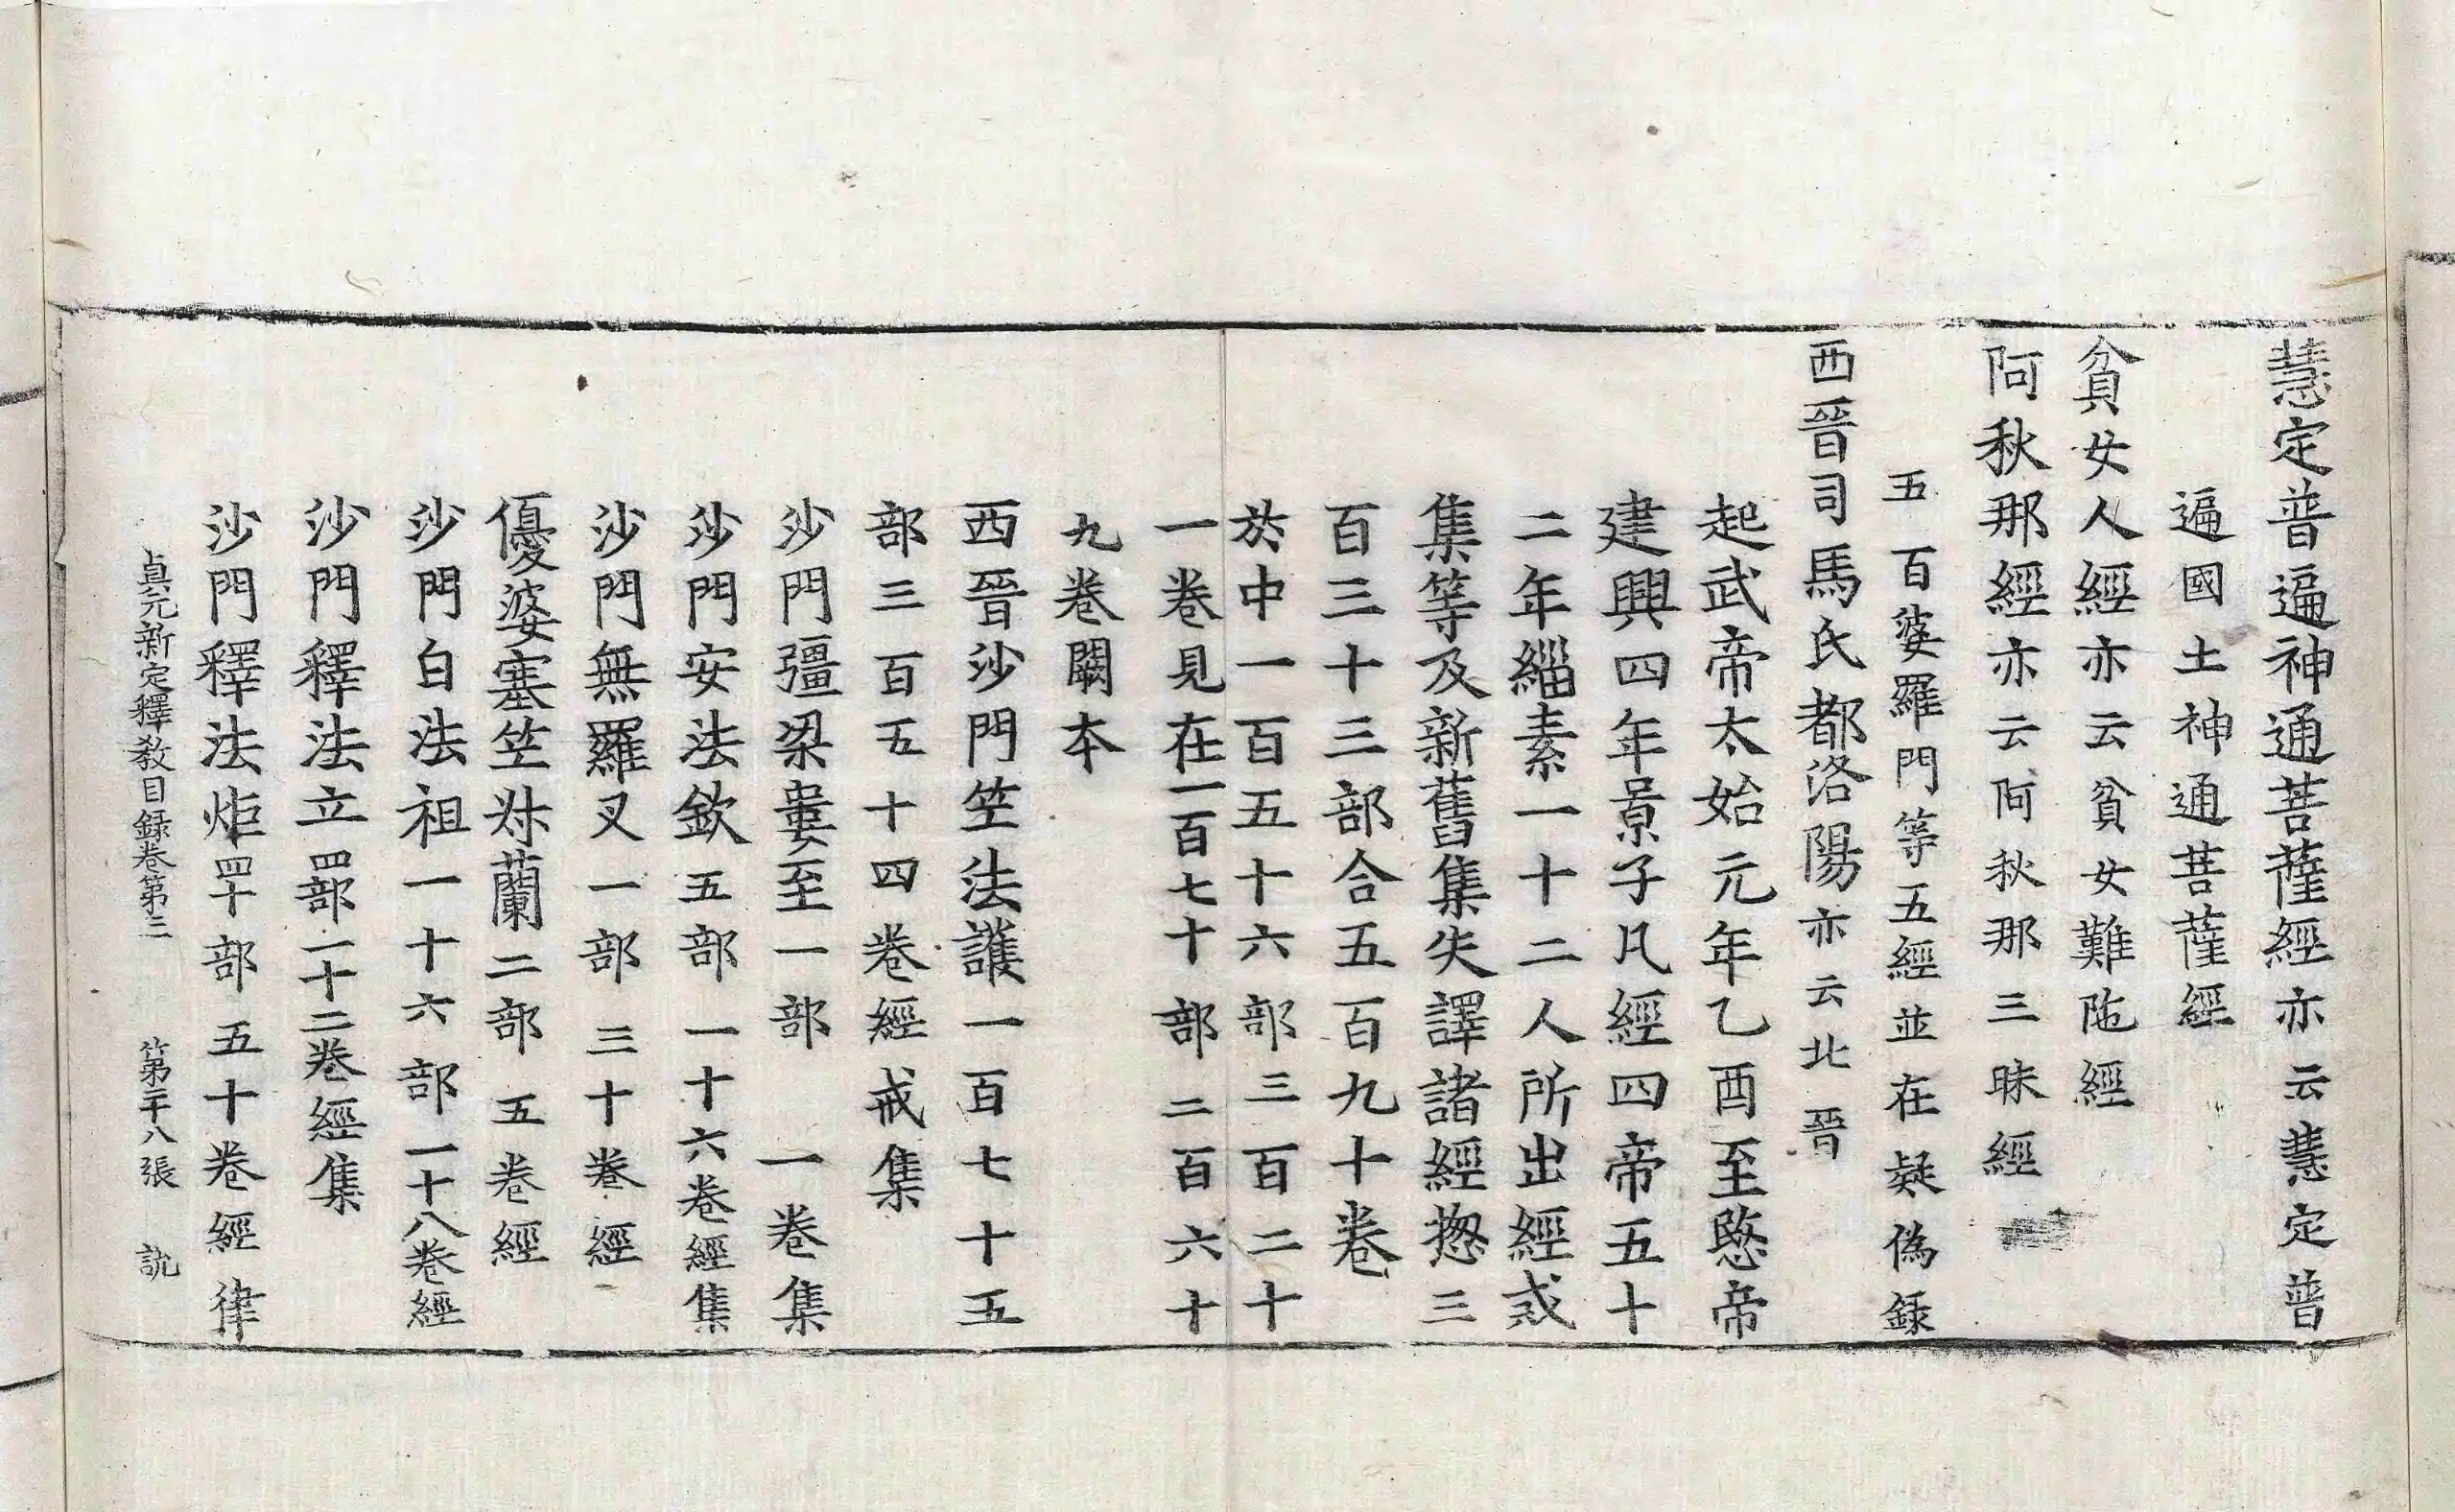 慧定普遍神通菩薩經亦云慧定普
遍國土神通菩薩經
貧女人經亦云貧女難陁經
阿秋那經亦云阿秋那三昧經
五百婆羅門等五經並在疑偽錄
西晉司馬氏都洛陽亦云北晉
起武帝太始元年乙酉至愍帝
建興四年景子凡經四帝五十
二年緇素一十二人所出經戒
集等及新舊集失譯諸經揔三
百三十三部合五百九十卷
於中一百五十六部三百二十
一卷見在一百七十部二百六十
九卷闕本
西晉沙門竺法護一百七十五
部三百五十四卷經戒集
沙門彊梁婁至一部一卷集
沙門安法欽五部一十六卷經集
沙門無羅叉一部三十卷經
優婆塞竺叔蘭二部五卷經
沙門白法祖一十六部一十八卷經
沙門釋法立四部一十二卷經集
沙門釋法炬四十部五十卷經律
貞元新定釋教目録卷第三 第二十八張 説